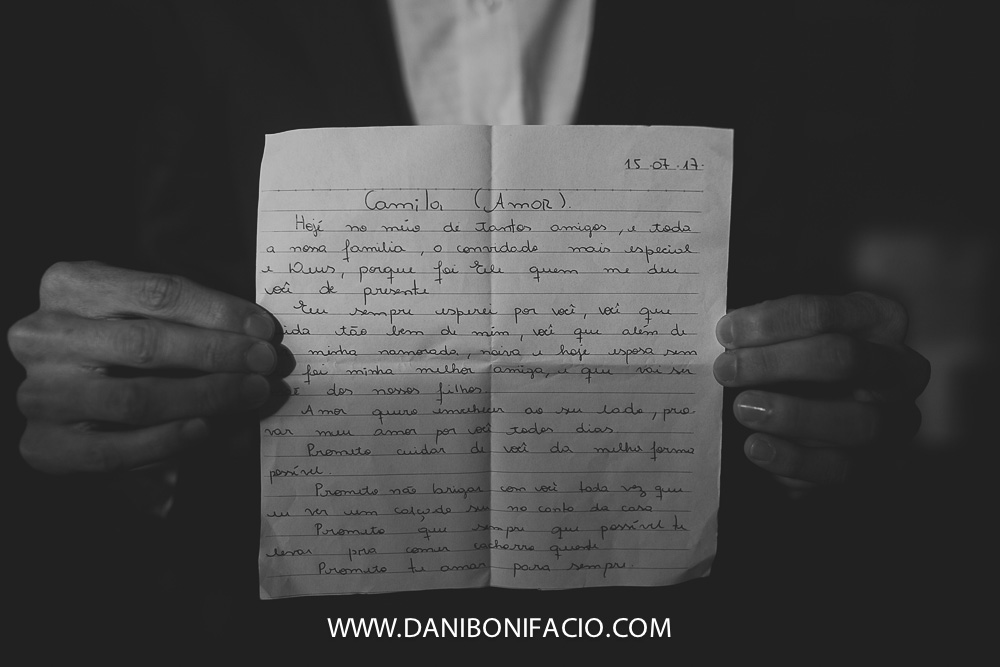 15.07.17.
Camila (Amor).
Hoje no meio de tantos amigos, e toda
a nossa familia, o convidado mais especial
e Deus, porque foi Ele quem me deu
você de presente
Eu sempre esperei por você, você que
ida tão bem de mim, você que além de
minha namorada, noiva e hoje esposa sem
foi minha melhor amiga, e que vai ser
e dos nossos filhos.
Amor quero envelhecer ao seu lado, pro-
var meu amor por você todos dias.
Prometo cuidar de você da melhor forma
possível.
Prometo não brigar com você toda vez que
eu ver um calçado seu no canto da casa
Prometo que sempre que possível te
levar pra comer cachorro quente
Prometo te amar para sempre.
WWW.DANIBONIFACIO.COM